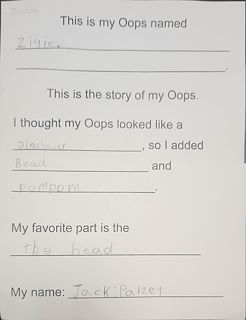 Jack
This is my Oops named
Zigie.
This is the story of my Oops.
I thought my Oops looked like a
Dinosaur, so I added
Bead and
pompom.
My favorite part is the
the head
My name: Jack Palzet